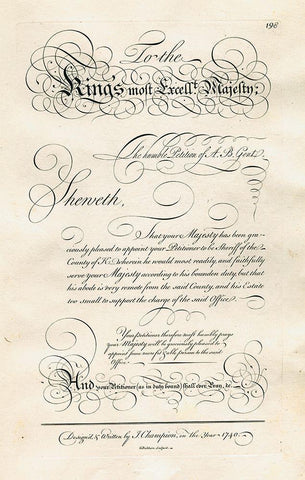 198
To the
King's most Excell.t Majesty;
The humble Petition of A. B. Gent.
Sheweth,
That your Majesty has been gra-
ciously pleased to appoint your Petitioner to be Sheriff of the
County of K. wherein he would most readily, and faithfully
serve your Majesty according to his bounden duty, but that
his abode is very remote from the said County, and his Estate
too small to support the charge of the said Office.
Your Petitioner therefore most humbly prays
your Majesty will be graciously pleased to
appoint some more fit & able person to the said
Office.
And your Petitioner (as in duty bound) shall ever Pray, &c.
Design'd & Written by J. Champion, in the Year 1740.
sculpsit